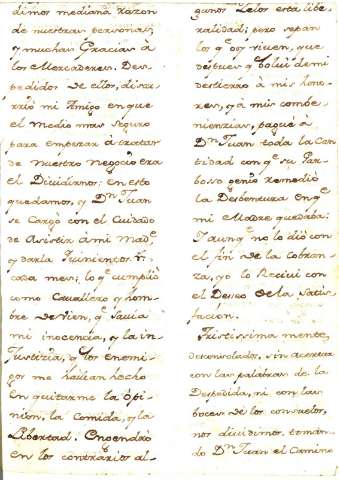 dimos mediana razon
de nuestras personas,
y muchas Gracias à
los Mercaderes. Des-
pedidos De ellos, discur-
rriò mi Amigo en que
el medio mas Seguro
para empezar à tratar
de Nuestro Negocio era
el Dividirnos; en esto
quedamos, y Dn. Juan
se Cargò con el Cuidado
de Asistir à mi Made.
y darla quinientos
cada mes; lo qe. cumpliò
como Cavallero y hom-
bre de vien, qe. savia
mi inocencia, y la in-
Justicia, qe. los enemi-
gos me habian hecho
en quitarme la opi-
nion, la comida, y la
Libertad. Engendrò
en los contrarios al-
gunos Zelos esta libe-
ralidad; pero sepan
los qe. oy viven, que
despues qe. bolvi de mi
destierro à mis hono-
res, y à mis combe-
niencias, paguè à
Dn. Juan toda la Can-
tidad con qe. su Gar-
boso genio remediò
la Desbentura en qe.
mi Madre quedaba:
Y aunqe. no lo diò con
el fin de la cobran-
za, yo lo Recivi con
el Deseo de la Satis-
facion.
Tristissima mente,
desconsolados, sin acertar
con las palabras de la
Despedida, ni con las
boces de los consuelos,
nos dividimos, toman-
do Dn. Juan el Camino